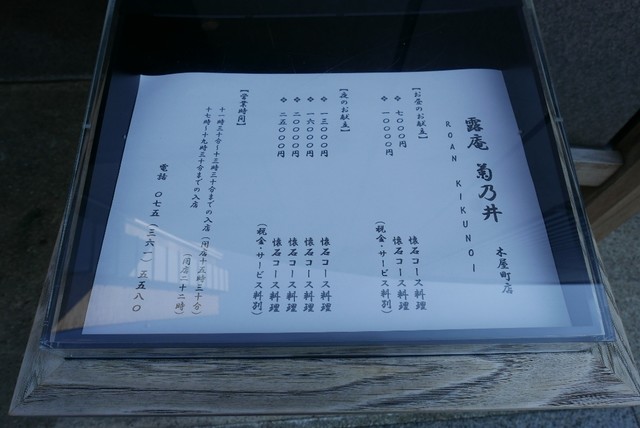 露庵 菊乃井 木屋町店
ROAN KIKUNOI
【お昼のお献立】
❖ 七〇〇〇円 懐石コース料理
❖ 一〇〇〇〇円 懐石コース料理
(税金・サービス料別)
【夜のお献立】
❖ 一三〇〇〇円 懐石コース料理
❖ 一六〇〇〇円 懐石コース料理
❖ 二〇〇〇〇円 懐石コース料理
❖ 二五〇〇〇円 懐石コース料理
(税金・サービス料別)
【営業時間】
十一時三十分~十三時三十分までの入店(閉店十五時三十分)
十七時~十九時三十分までの入店(閉店二十二時)
電話 〇七五(三六一)五五八〇